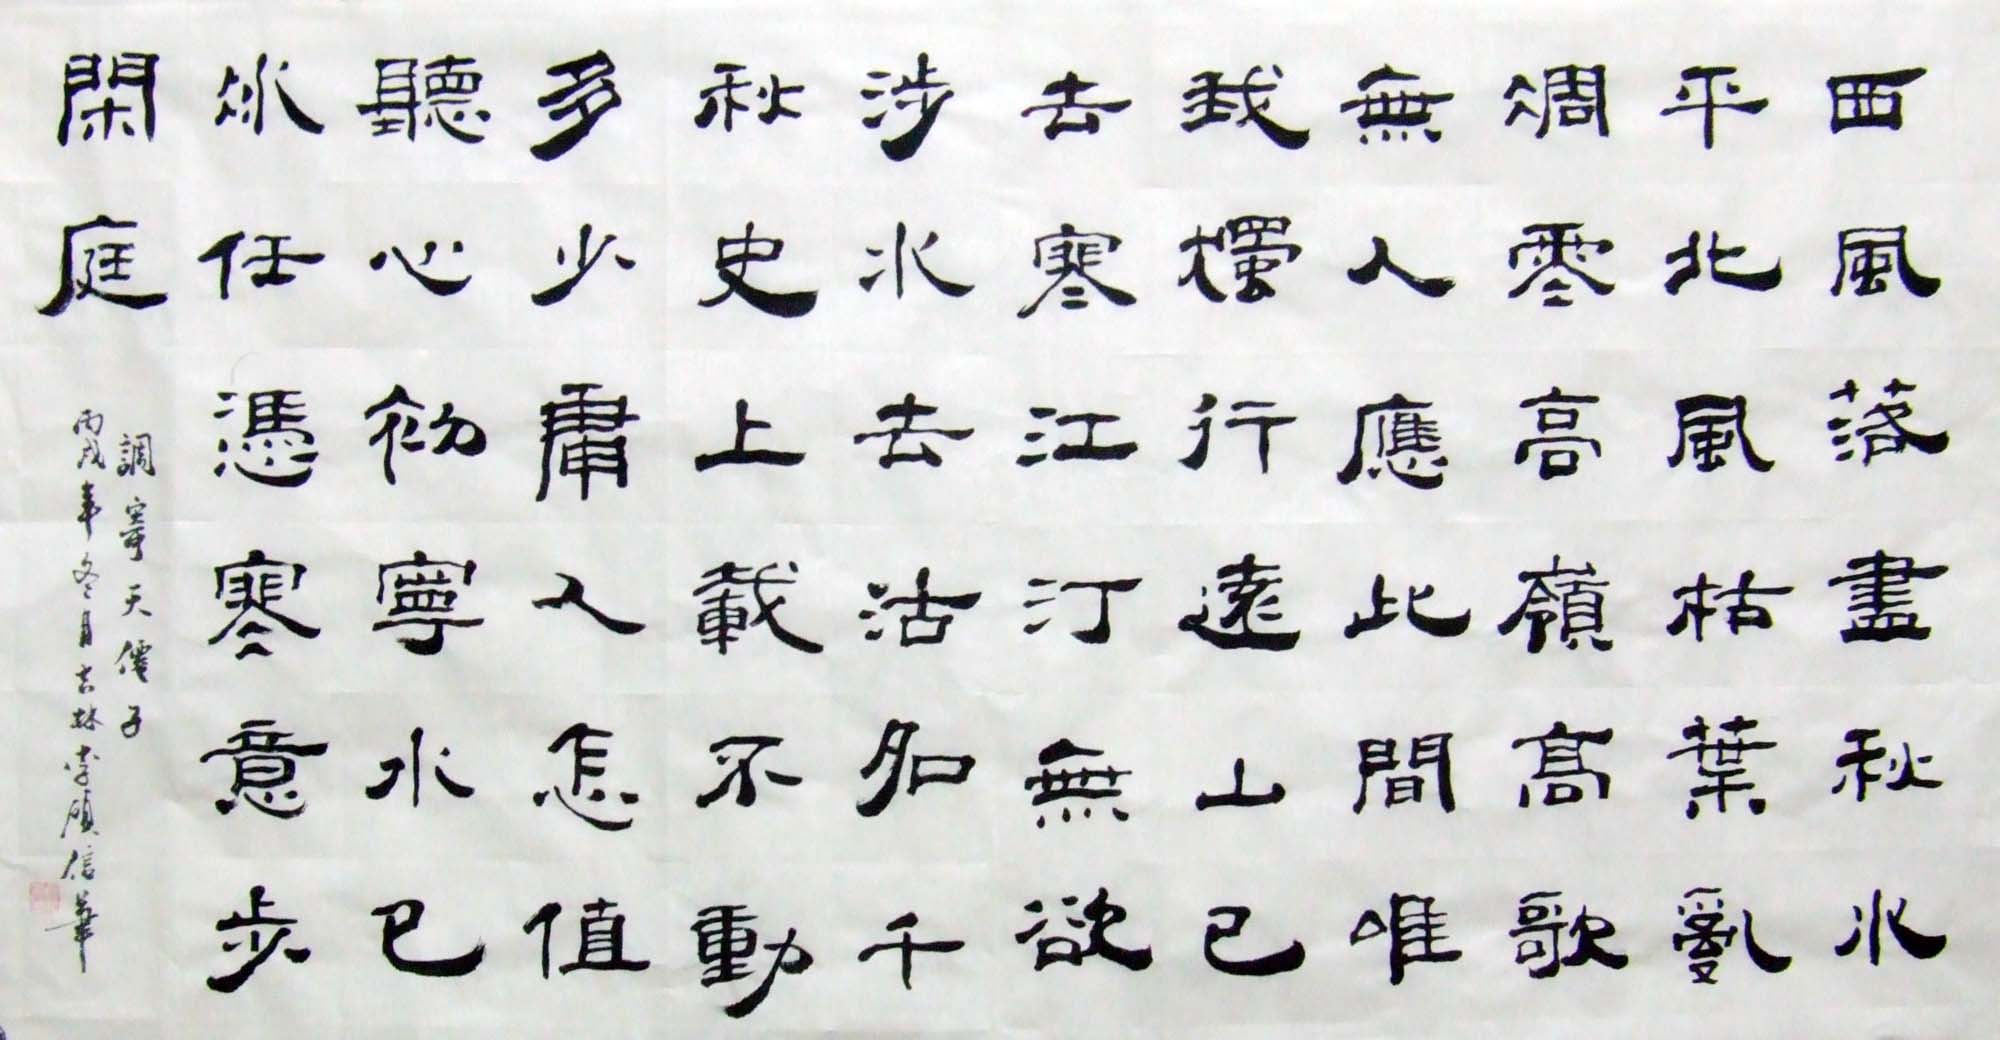 西風落盡秋水
平北風枯葉亂
凋零高嶺高歌
無人應此間唯
我獨行遠山已
去寒江汀無欲
涉水去沽名千
秋史上載不動
多少庸人怎值
聽心初寧水已
冰任憑寒意步
閑庭
調寄天僊子
丙戌年冬月吉林李碩信筆